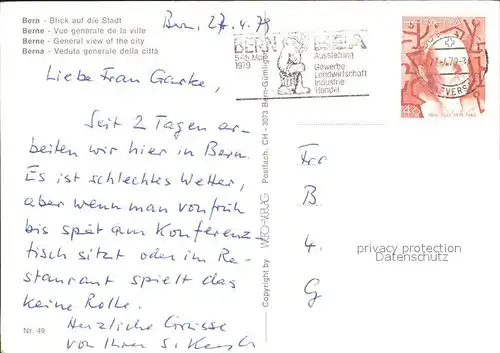 Bern - Blick auf die Stadt
Berne - Vue générale de la ville
Berne - General view of the city
Berna - Veduta generale della città
Bern, 27.4.79
BERN BEA
5-15. Mai
1979
Ausstellung
Gewerbe
Landwirtschaft
Industrie
Handel
HELVETIA
40
Liebe Frau Garke,
Seit 2 Tagen ar-
beiten wir hier in Bern.
Es ist schlechtes Wetter,
aber wenn man von früh
bis spät am Konferenz-
tisch sitzt oder im Re-
staurant spielt das
keine Rolle.
Herzliche Grüsse
von Ihrer S.
Nr. 49
Copyright by
Postfach, CH - 3073 Bern-Gümligen
Fr
B
4
G
privacy protection
Datenschutz